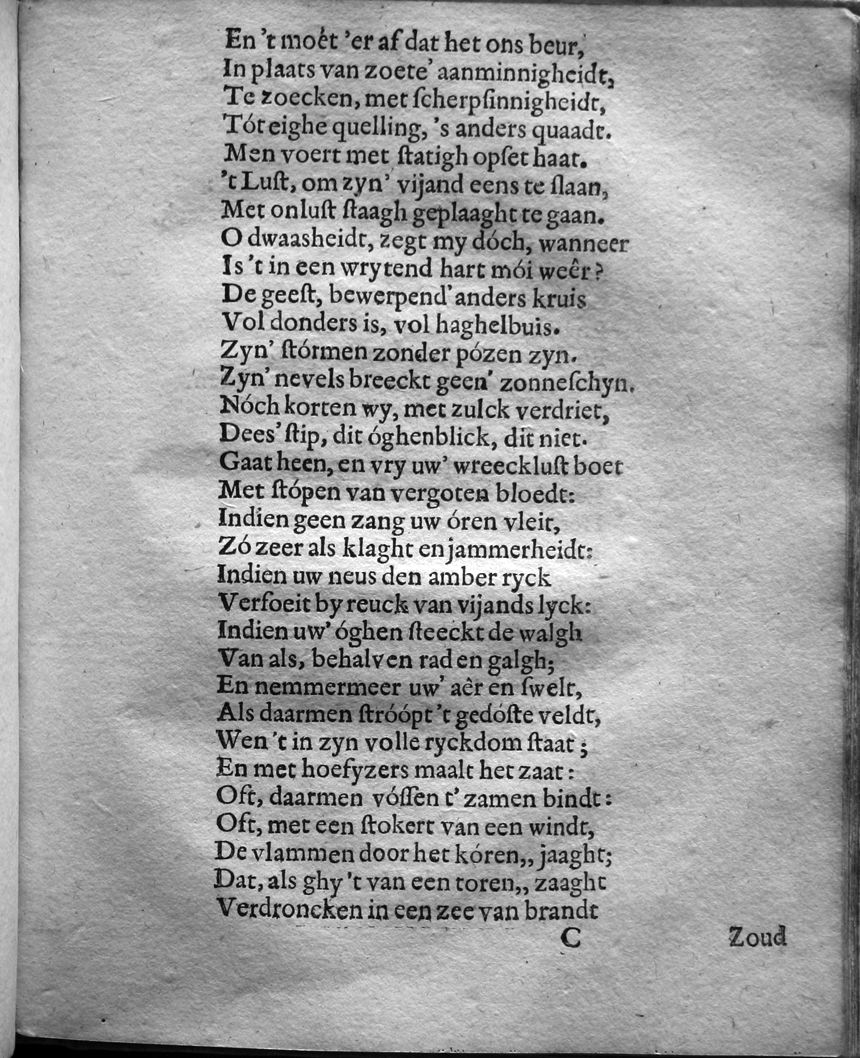 En 't moét 'er af dat het ons beur,
In plaats van zoete' aanminnigheidt,
Te zoecken, met ſcherpſinnigheidt,
Tót eighe quelling, 's anders quaadt.
Men voert met ſtatigh opſet haat.
't Luſt, om zyn' vijand eens te ſlaan,
Met onluſt ſtaagh geplaaght te gaan.
O dwaasheidt, zegt my dóch, wanneer
Is 't in een wrytend hart mói weêr?
De geeſt, bewerpend' anders kruis
Vol donders is, vol haghelbuis.
Zyn' ſtórmen zonder pózen zyn.
Zyn' nevels breeckt geen' zonneſchyn.
Nóch korten wy, met zulck verdriet,
Dees' ſtip, dit óghenblick, dit niet.
Gaat heen, en vry uw' wreeckluſt boet
Met ſtópen van vergoten bloedt:
Indien geen zang uw óren vleit,
Zó zeer als klaght en jammerheidt:
Indien uw neus den amber ryck
Verfoeit by reuck van vijands lyck:
Indien uw' óghen ſteeckt de walgh
Van als, behalven rad en galgh;
En nemmermeer uw' aêr en ſwelt,
Als daarmen ſtróópt 't gedóſte veldt,
Wen 't in zyn volle ryckdom ſtaat;
En met hoefyzers maalt het zaat:
Oft, daarmen vóſſen t' zamen bindt:
Oft, met een ſtokert van een windt,
De vlammen door het kóren,, jaaght;
Dat, als ghy 't van een toren,, zaaght
Verdroncken in een zee van brandt
C Zoud